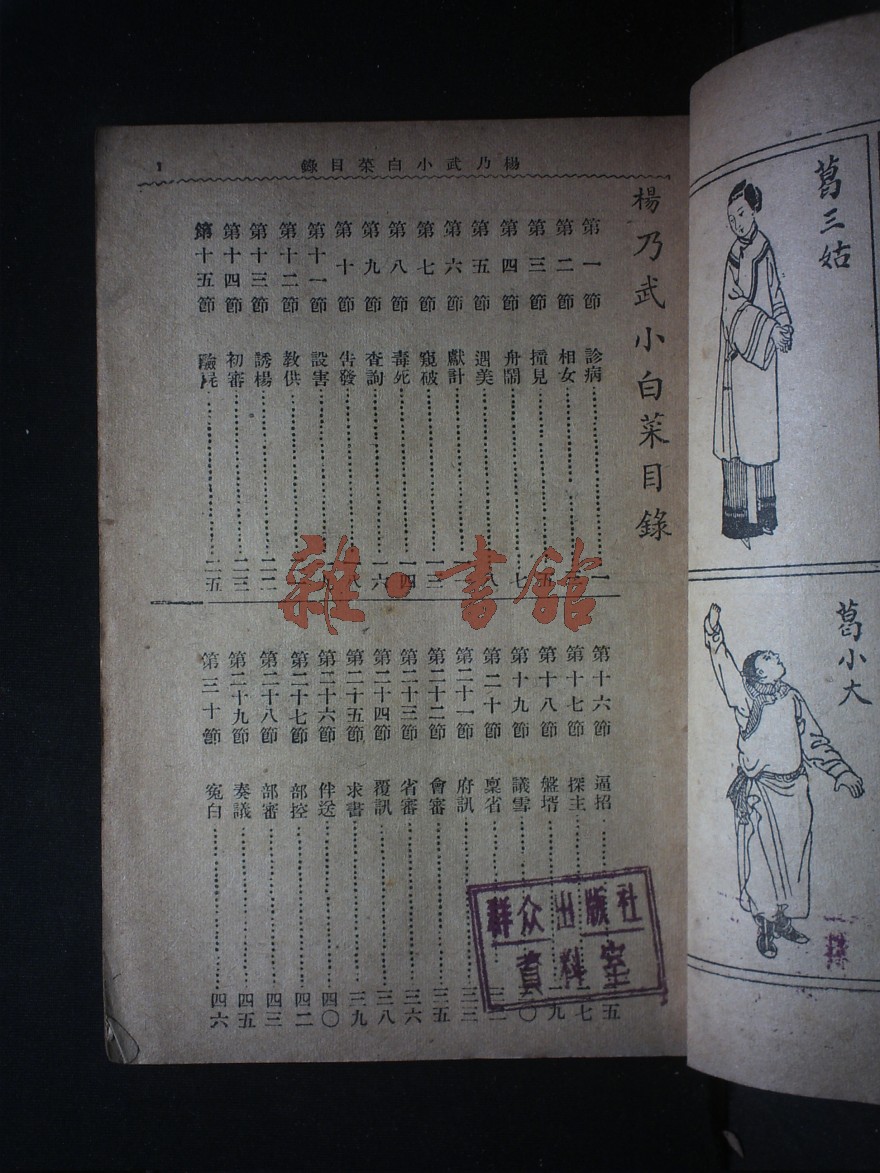 葛三姑
葛小大
楊乃武小白菜目錄
1
楊乃武小白菜目錄
第一節 診病 一
第二節 相女
第三節 撞見 五
第四節 舟鬧 七
第五節 遇美 八
第六節 獻計
第七節 窺破 一三
第八節 毒死 一四
第九節 查詢 一六
第十節 告發
第十一節 設害
第十二節 教供
第十三節 誘楊 二二
第十四節 初審 二三
第十五節 驗屍 二五
第十六節 逼招
第十七節 探主
第十八節 盤壻
第十九節 議雪
第二十節 稟省
第二十一節 府訊 三三
第二十二節 會審 三五
第二十三節 省審 三六
第二十四節 覆訊 三八
第二十五節 求書 三九
第二十六節 伴送 四〇
第二十七節 部控 四二
第二十八節 部審 四三
第二十九節 奏議 四五
第三十節 寃白 四六
雜·書館
群众出版社
資料室